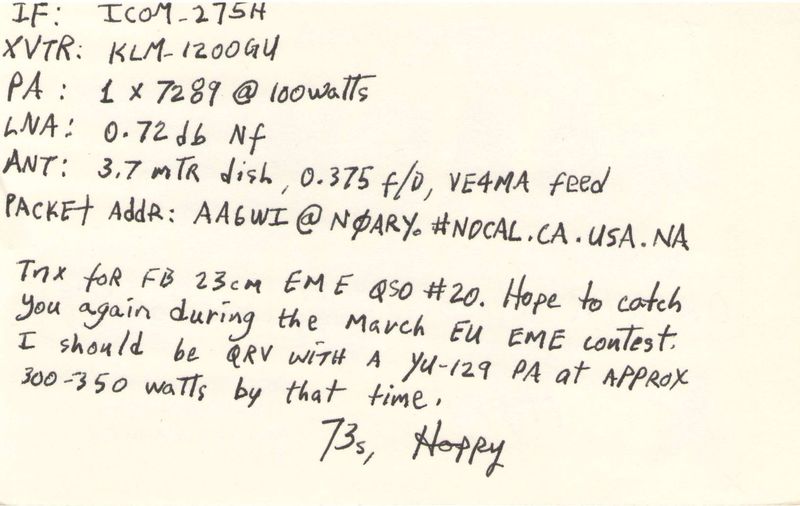 IF: ICOM-275H
XVTR: KLM-1200GU
PA: 1 x 7289 @ 100watts
LNA: 0.72db Nf
ANT: 3.7 mTR dish, 0.375 f/D, VE4MA feed
PACKEt AddR: AA6WI @ NØARY. #NOCAL.CA.USA.NA
Tnx foR FB 23cm EME QSO #20. Hope to catch
You again during the March EU EME contest.
I should be QRV WITH A YU-129 PA at APPROX
300-350 watts by that time.
73s, Hoppy